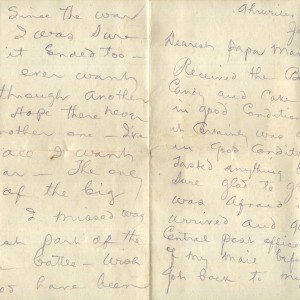 Since the war
I was sure
it ended too
ever want
through another
Hope there never
another one I've
I want
war The only
of the big
I missed was
part of the
Battle Wish
have been
Dearest Papa Mam
Received the B
Candy and Cake
in good Condition
it certainly was
in Good Condit
Tasted anything
Sure glad to g
was afraid
arrived and g
Central post office
of my mail bef
Job back to me